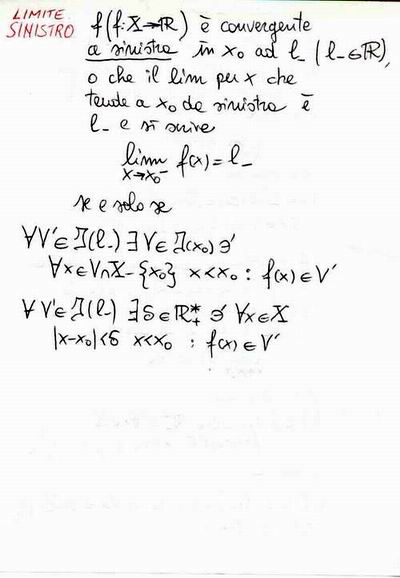 LIMITE
SINISTRO
f (f: X→ℝ) è convergente
a sinistra in x₀ ad l₋ (l₋∈ℝ),
o che il lim per x che
tende a x₀ da sinistra è
l₋ e si scrive
lim f(x) = l₋
x→x₀⁻
se e solo se
∀V'∈ℑ(l₋) ∃V∈ℑ(x₀) ∋'
∀x∈V∩X-{x₀} x<x₀ : f(x)∈V'
∀V'∈ℑ(l₋) ∃δ∈ℝ₊* ∋' ∀x∈X
|x-x₀|<δ x<x₀ : f(x)∈V'